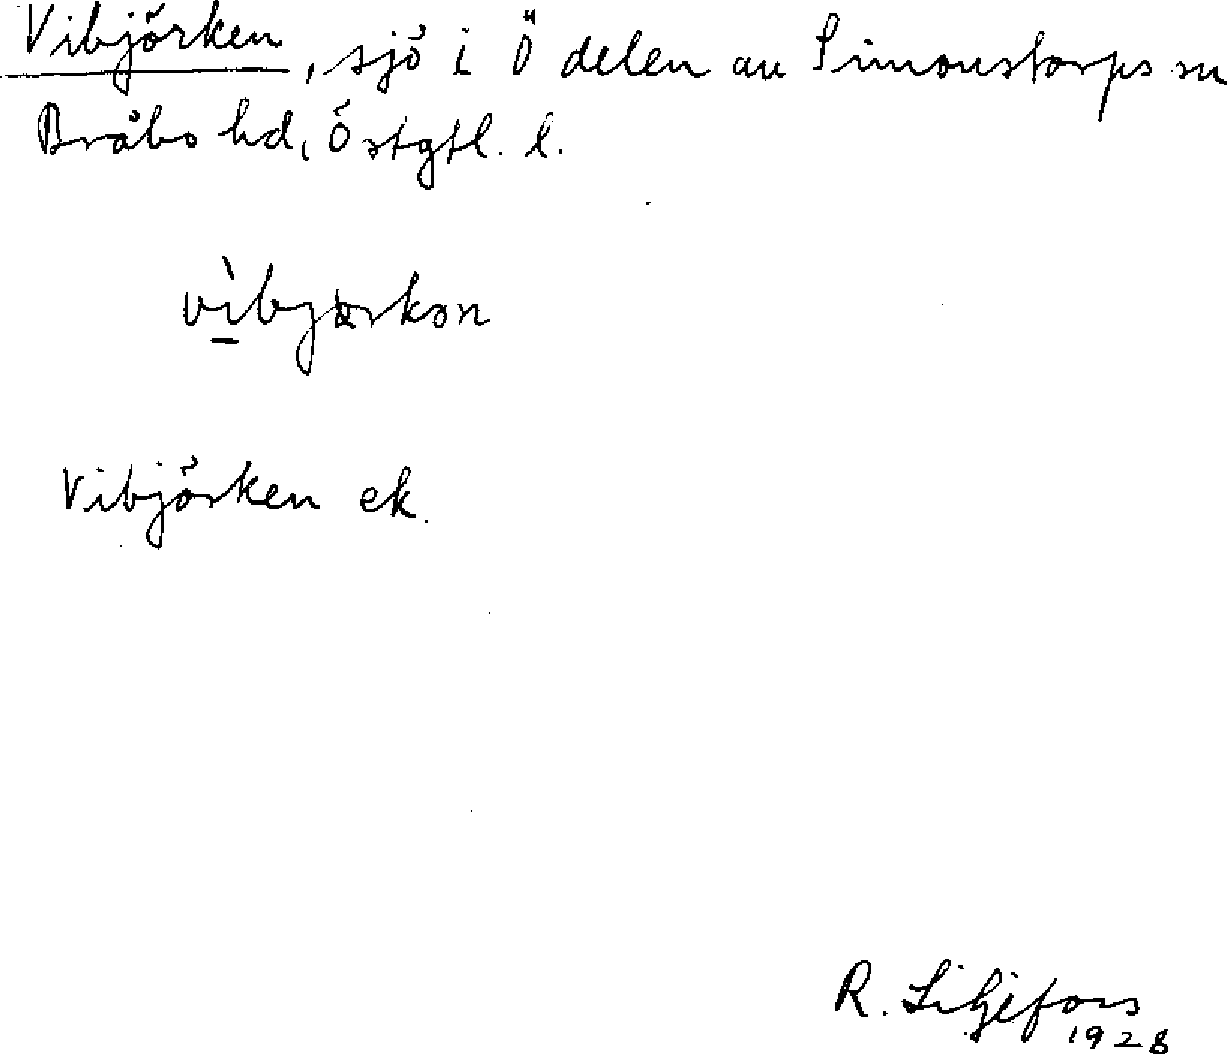 Vibjörken, sjö i Ö delen av Simonstorps sn
Bråbo hd, Östgtl. l.
Vibjörken ek.
R. Liljefors
1928